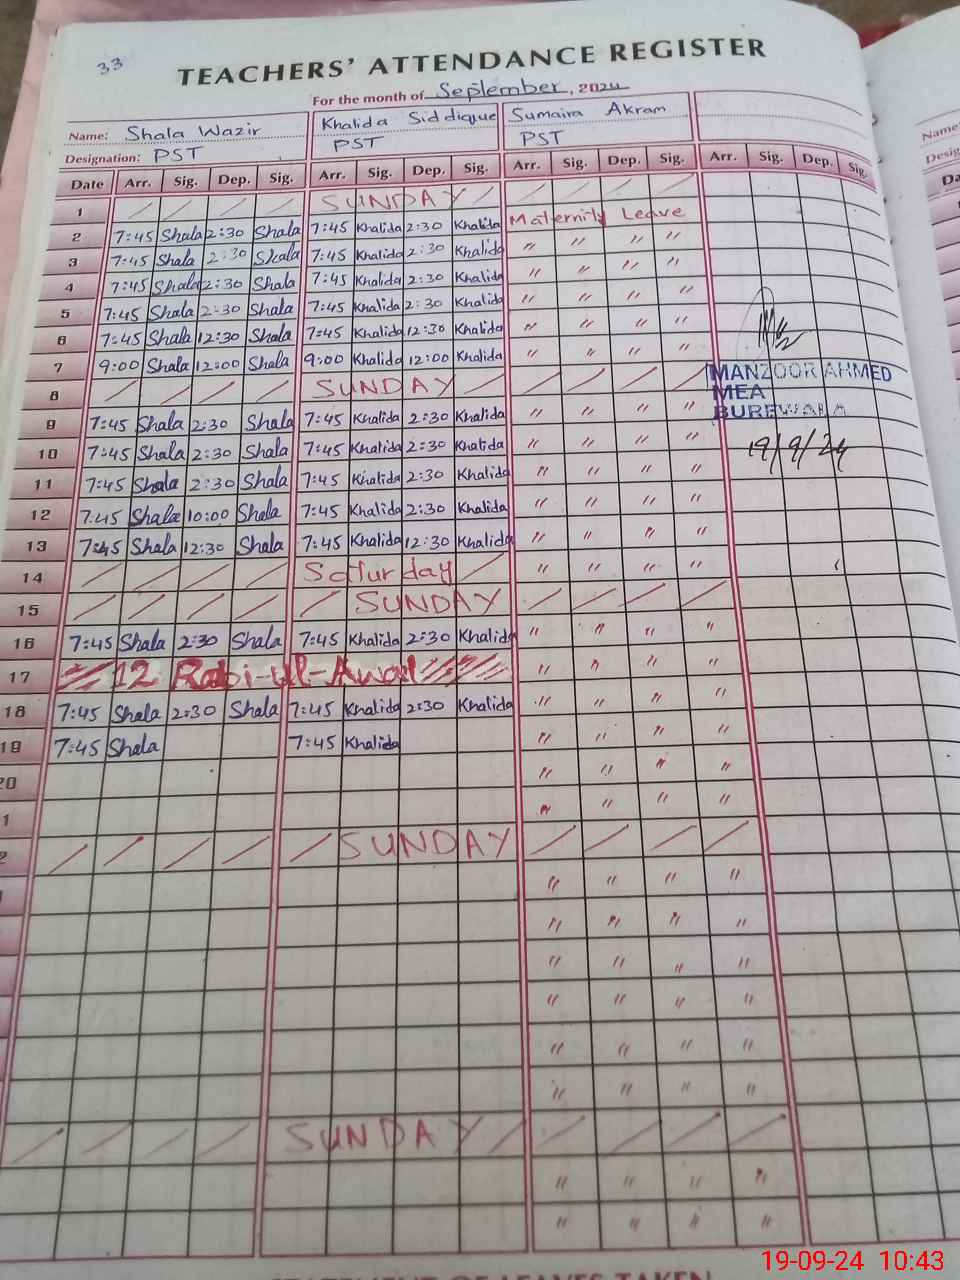 33
TEACHERS' ATTENDANCE REGISTER
For the month of September, 2024
Name: Shala Wazir Khalida Siddique Sumaira Akram
Designation: PST PST PST
Date Arr. Sig. Dep. Sig. Arr. Sig. Dep. Sig. Arr. Sig. Dep. Sig. Arr. Sig. Dep. Sig.
1 / / / / SUNDAY / / / / /
2 7:45 Shala 2:30 Shala 7:45 Khalida 2:30 Khalida Maternity Leave
3 7:45 Shala 2:30 Shala 7:45 Khalida 2:30 Khalida " " " "
4 7:45 Shala 2:30 Shala 7:45 Khalida 2:30 Khalida " " " "
5 7:45 Shala 2:30 Shala 7:45 Khalida 2:30 Khalida " " " "
6 7:45 Shala 12:30 Shala 7:45 Khalida 12:30 Khalida " " " "
7 9:00 Shala 12:00 Shala 9:00 Khalida 12:00 Khalida " " " "
8 / / / / SUNDAY / / / / /
MANZOOR AHMED
MEA
BUREWALA
19/9/24
9 7:45 Shala 2:30 Shala 7:45 Khalida 2:30 Khalida " " " "
10 7:45 Shala 2:30 Shala 7:45 Khalida 2:30 Khalida " " " "
11 7:45 Shala 2:30 Shala 7:45 Khalida 2:30 Khalida " " " "
12 7:45 Shala 10:00 Shala 7:45 Khalida 2:30 Khalida " " " "
13 7:45 Shala 12:30 Shala 7:45 Khalida 12:30 Khalida " " " "
14 / / / / Saturday / " " " "
15 / / / / / SUNDAY / / / /
16 7:45 Shala 2:30 Shala 7:45 Khalida 2:30 Khalida " " " "
17 12 Rabi-ul-Awal " " " "
18 7:45 Shala 2:30 Shala 7:45 Khalida 2:30 Khalida " " " "
19 7:45 Shala 7:45 Khalida " " " "
20 " " " "
1 " " " "
2 / / / / / SUNDAY / / / /
" " " "
" " " "
" " " "
" " " "
" " " "
" " " "
/ / / / SUNDAY / / / / /
" " " "
" " " "
STATEMENT OF LEAVES TAKEN
19-09-24 10:43